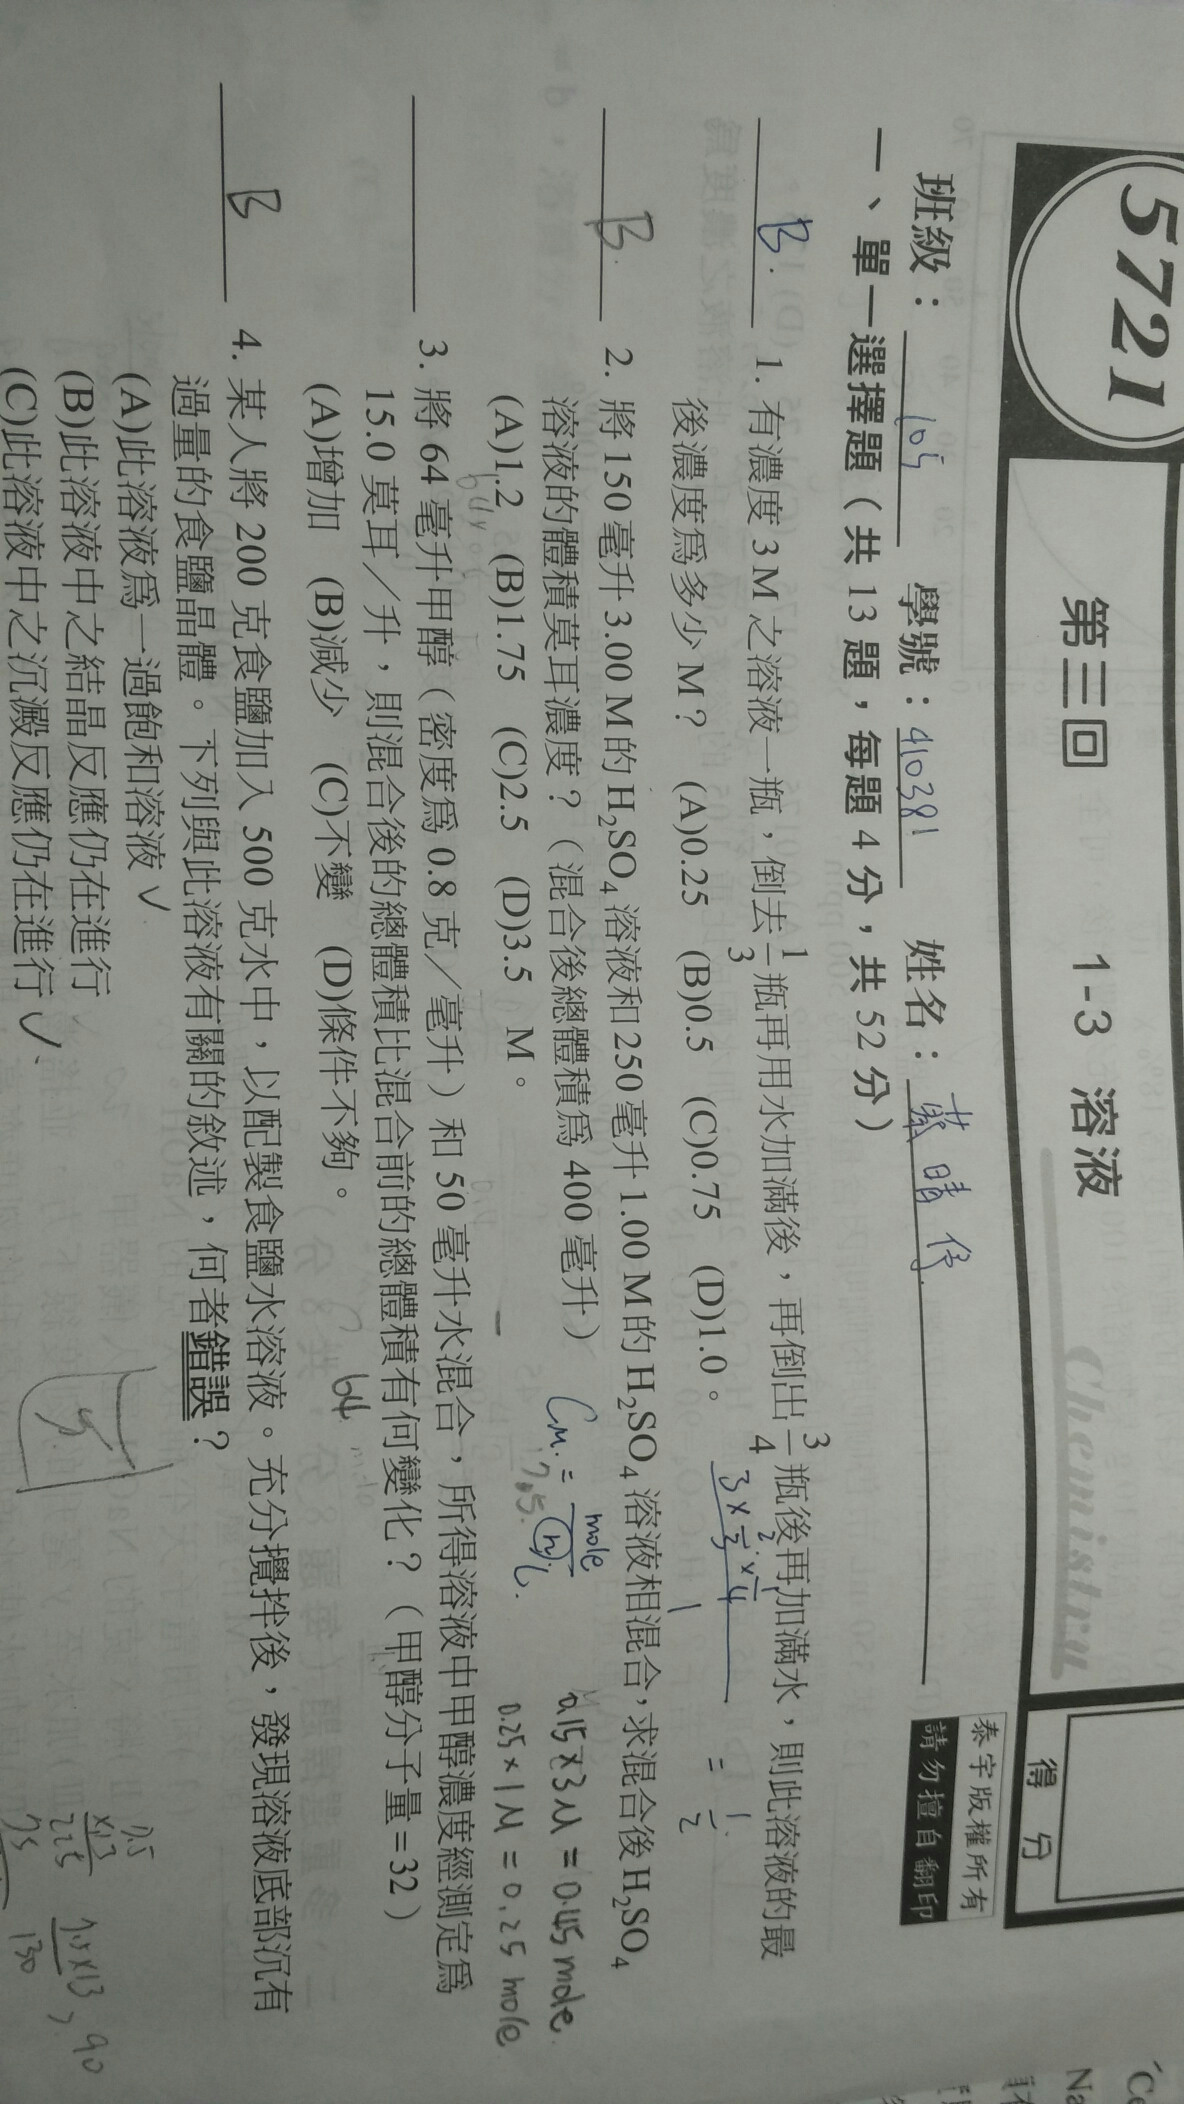 5721
第三回　1-3　溶液
Chemistry
得分
泰宇版權所有
請勿擅自翻印
班級：105　學號：410381　姓名：
一、單一選擇題（共 13 題，每題 4 分，共 52 分）
B. 1. 有濃度 3 M 之溶液一瓶，倒去 1/3 瓶再用水加滿後，再倒出 3/4 瓶後再加滿水，則此溶液的最
後濃度爲多少 M？ (A)0.25 (B)0.5 (C)0.75 (D)1.0。
B. 2. 將 150 毫升 3.00 M 的 H₂SO₄ 溶液和 250 毫升 1.00 M 的 H₂SO₄ 溶液相混合，求混合後 H₂SO₄
溶液的體積莫耳濃度？（混合後總體積爲 400 毫升）
0.15×3M = 0.45 mole.
(A)1.2 (B)1.75 (C)2.5 (D)3.5 M。
0.25×1M = 0.25 mole
3. 將 64 毫升甲醇（密度爲 0.8 克／毫升）和 50 毫升水混合，所得溶液中甲醇濃度經測定爲
15.0 莫耳／升，則混合後的總體積比混合前的總體積有何變化？（甲醇分子量=32）
(A)增加 (B)減少 (C)不變 (D)條件不夠。
64
B 4. 某人將 200 克食鹽加入 500 克水中，以配製食鹽水溶液。充分攪拌後，發現溶液底部沉有
過量的食鹽晶體。下列與此溶液有關的敘述，何者錯誤？
(A)此溶液爲一過飽和溶液 ✓
(B)此溶液中之結晶反應仍在進行
(C)此溶液中之沉澱反應仍在進行 ✓